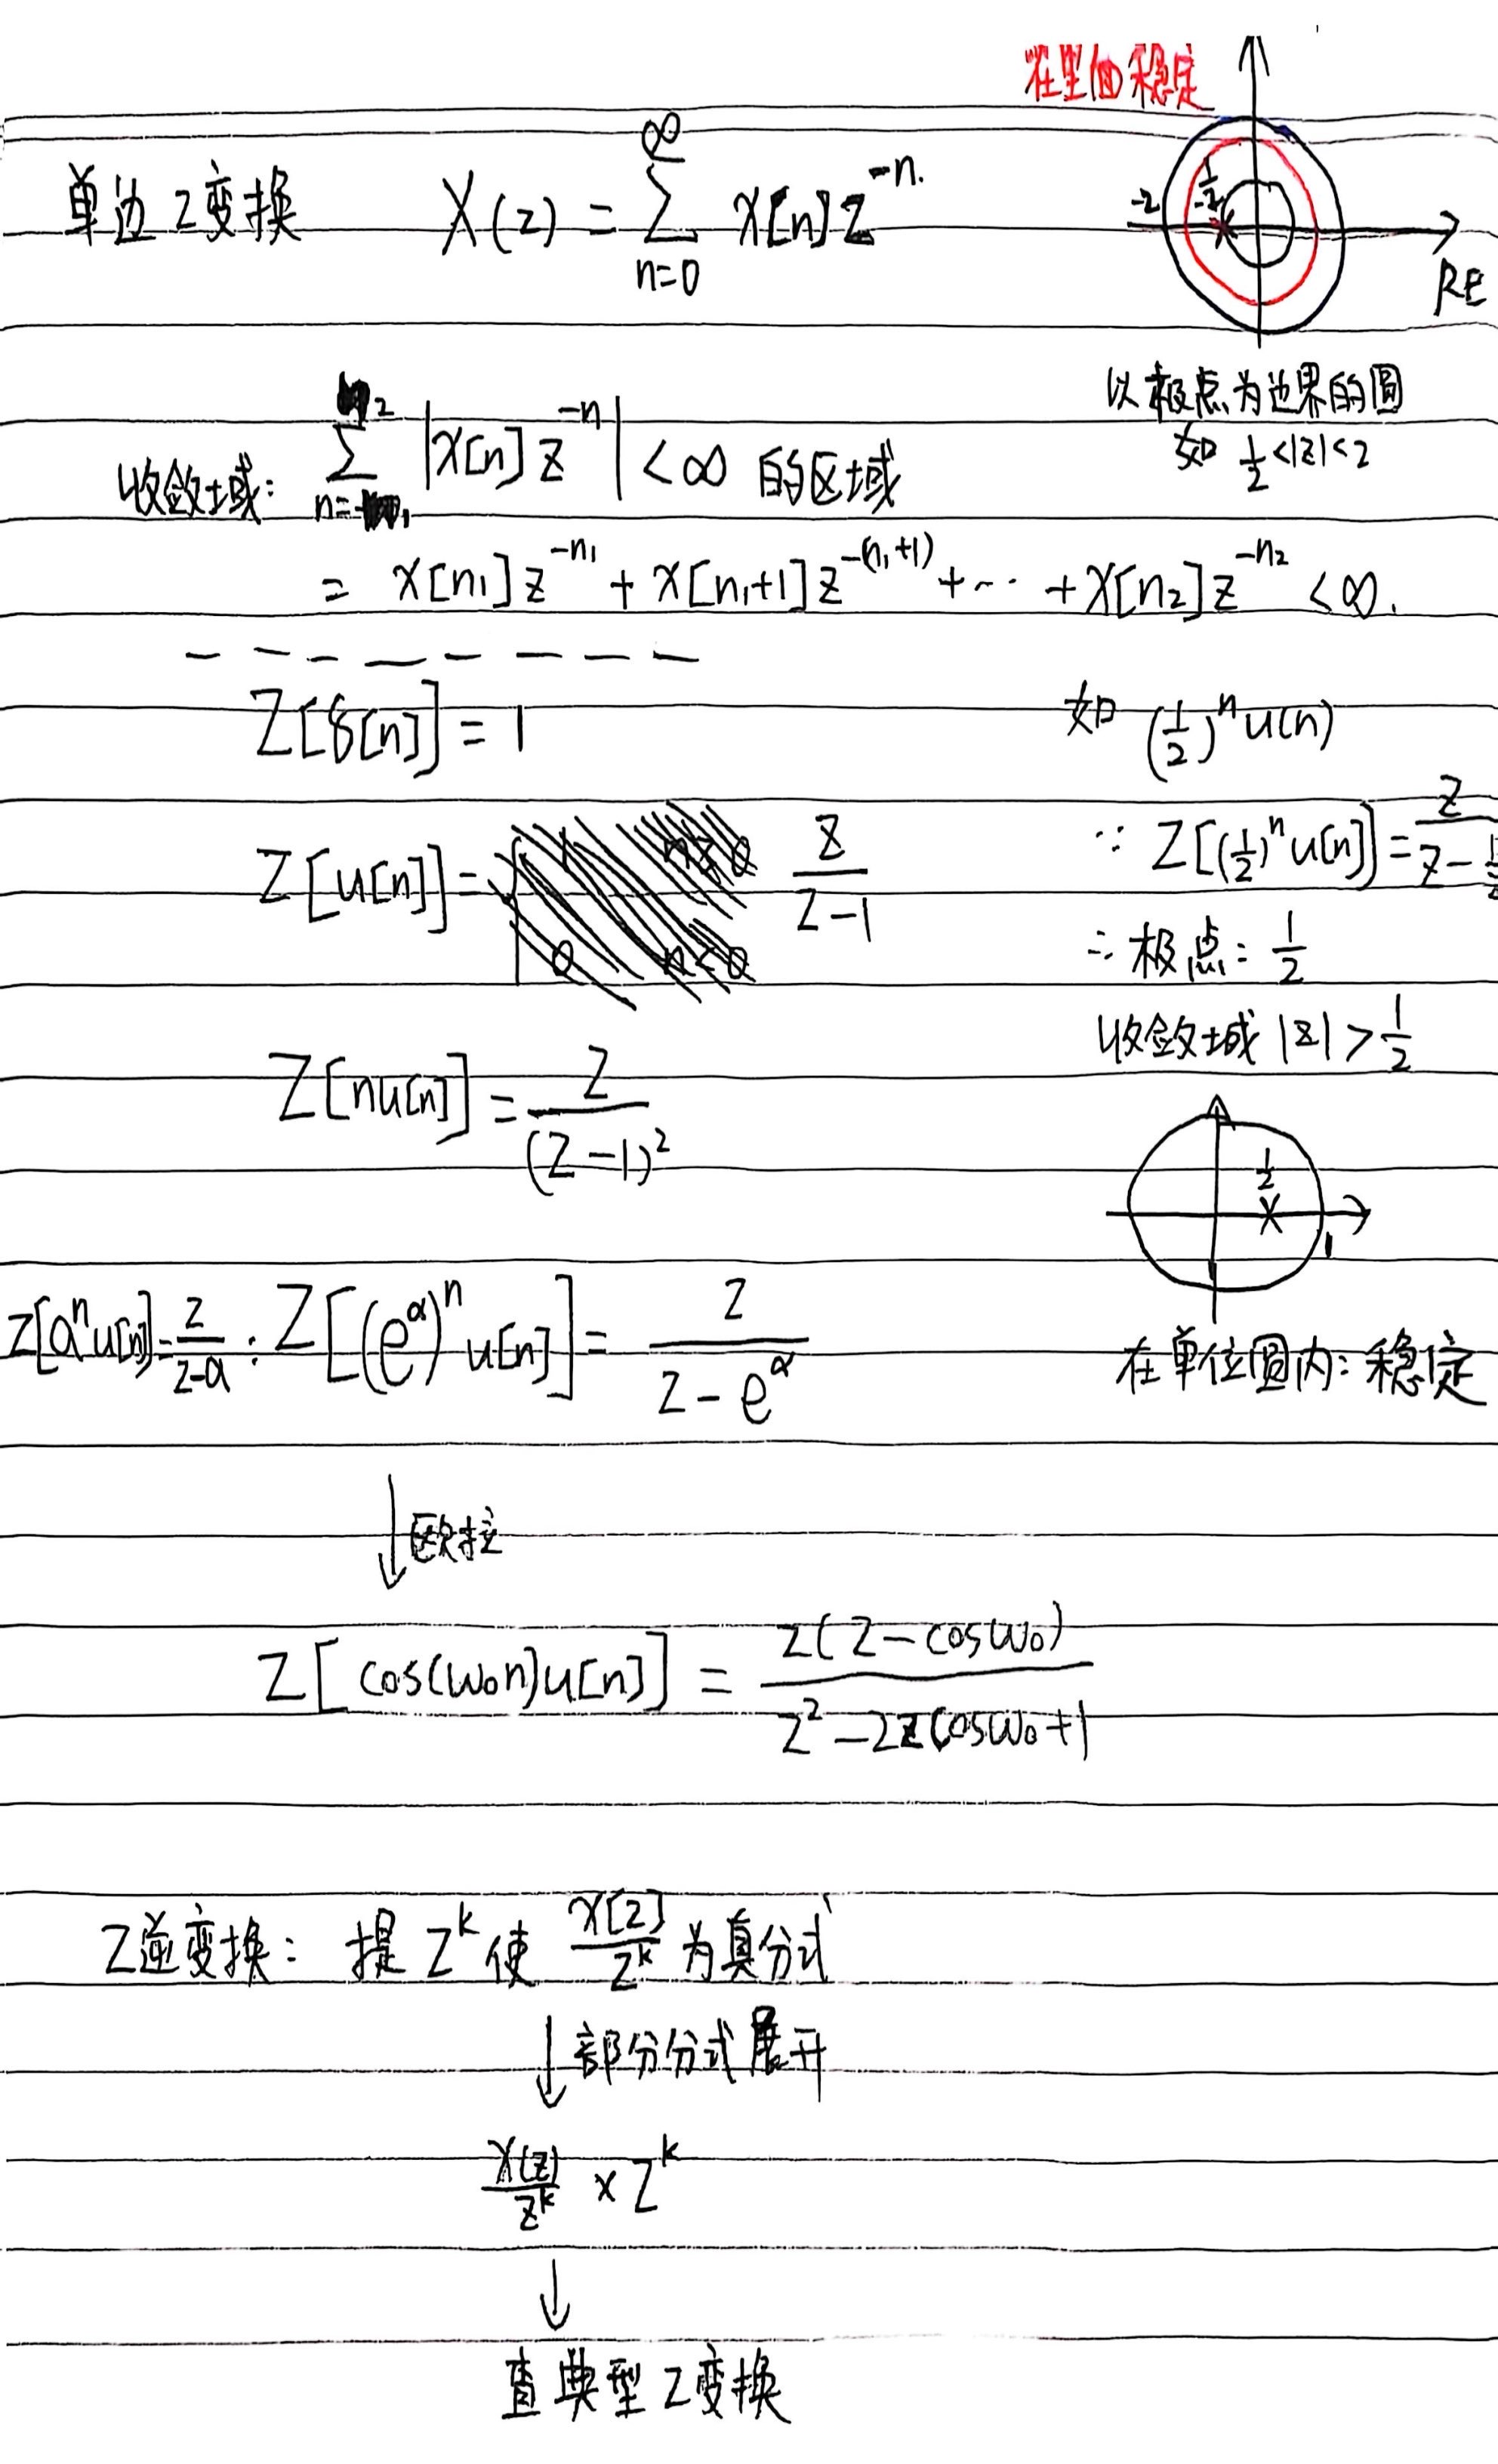 在里面稳定
单边Z变换 X(z) = ∑_{n=0}^{∞} x[n]z^{-n}
-2 -1/2
RE
以极点为边界的圆
如 1/2<|z|<2
收敛域: ∑_{n=n₁}^{n₂} |x[n]z^{-n}| < ∞ 的区域
= x[n₁]z^{-n₁} + x[n₁+1]z^{-(n₁+1)} + ⋯ + x[n₂]z^{-n₂} < ∞.
Z[δ[n]] = 1
如 (1/2)^n u(n)
Z[u[n]] = z/(z-1)
∵ Z[(1/2)^n u[n]] = z/(z-1/2)
∴ 极点: 1/2
收敛域 |z| > 1/2
Z[nu[n]] = z/(z-1)²
1/2
1
Z[a^n u[n]] = z/(z-a) : Z[(e^α)^n u[n]] = z/(z-e^α)
在单位圆内: 稳定
↓欧拉
Z[cos(ω₀n)u[n]] = z(z-cosω₀)/(z²-2zcosω₀+1)
Z逆变换: 提 Z^k 使 X[z]/z^k 为真分式
↓部分分式展开
X(z)/z^k × Z^k
↓
查典型Z变换